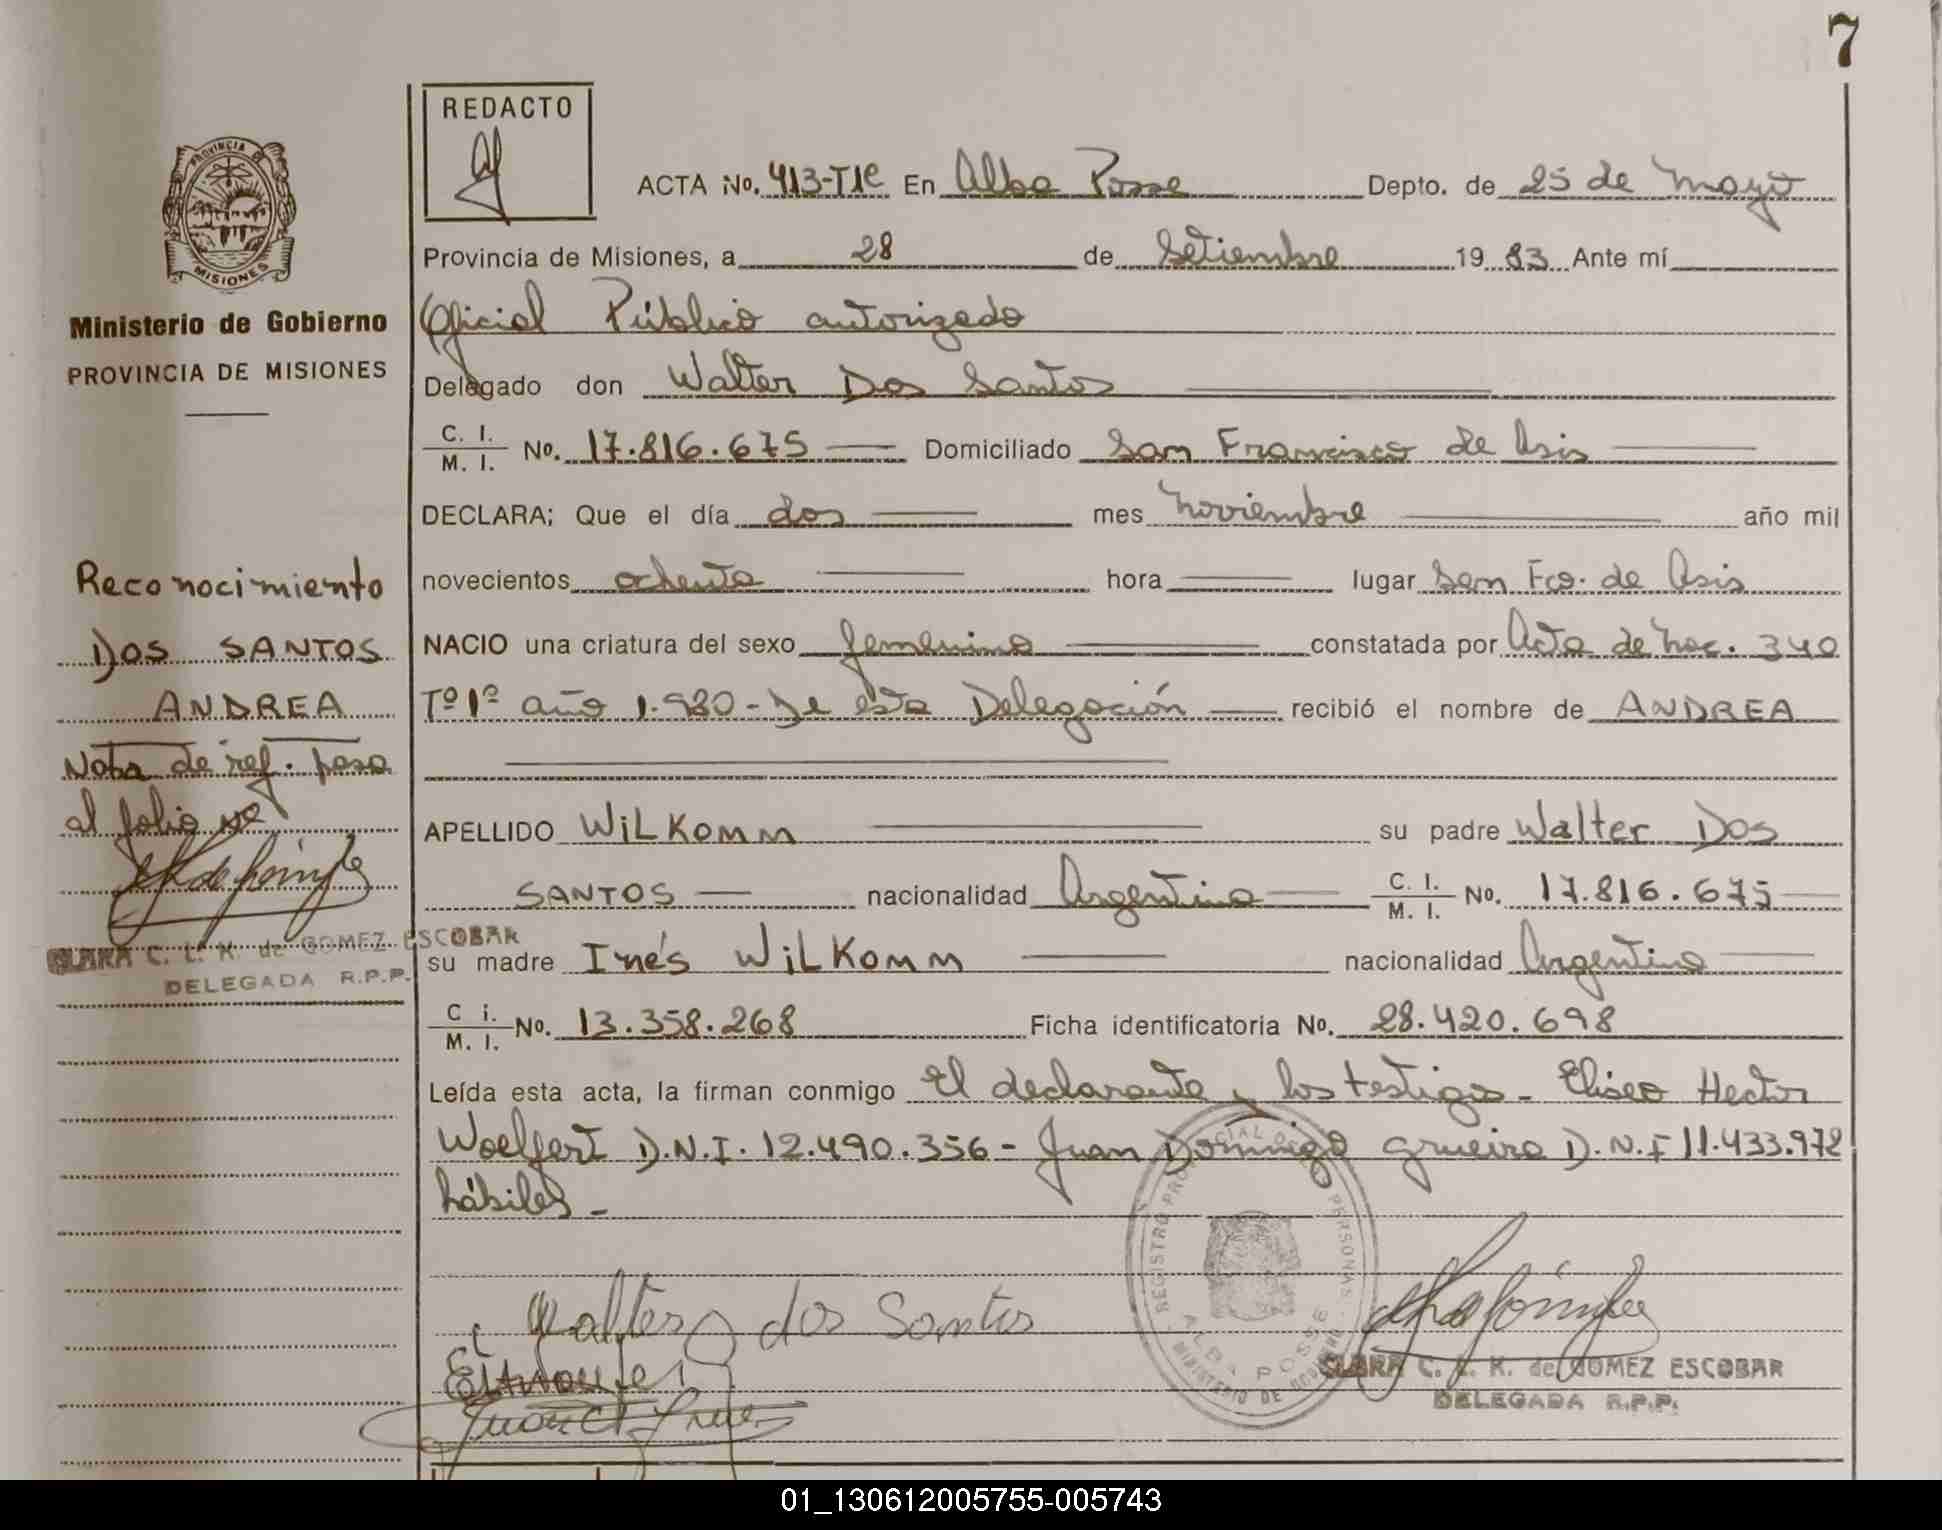 7
REDACTO
ACTA No. 413-T1º En Alba Posse Depto. de 25 de Mayo
Provincia de Misiones, a 28 de Setiembre 19 83 Ante mí
Oficial Público autorizado
Delegado don Walter Dos Santos
C. I. / M. I. No. 17.816.675 Domiciliado San Francisco de Asis
DECLARA; Que el día dos mes noviembre año mil
novecientos ochenta hora lugar San Fco. de Asis
NACIO una criatura del sexo femenino constatada por Acta de Nac. 340
Tº 1º año 1.980 - De esta Delegación recibió el nombre de ANDREA
APELLIDO WiLKomm su padre Walter Dos
SANTOS nacionalidad Argentina C. I. / M. I. No. 17.816.675
su madre Inés WiLKomm nacionalidad Argentina
C i. / M. I. No. 13.358.268 Ficha identificatoria No. 28.420.698
Leída esta acta, la firman conmigo El declarante y los testigos - Eliseo Hector
Woelfert D.N.I. 12.490.356 - Juan Domingo grueiro D.N.I 11.433.972
hábiles -
Walter dos Santos
CLARA C. L. K. de GOMEZ ESCOBAR
DELEGADA R.P.P.
REGISTRO PROVINCIAL DE LAS PERSONAS
ALBA POSSE
MINISTERIO DE GOBIERNO
PROVINCIA DE
MISIONES
Ministerio de Gobierno
PROVINCIA DE MISIONES
Reconocimiento
DOS SANTOS
ANDREA
Nota de ref. pasa
al folio
CLARA C. L. K. de GOMEZ ESCOBAR
DELEGADA R.P.P.
01_130612005755-005743